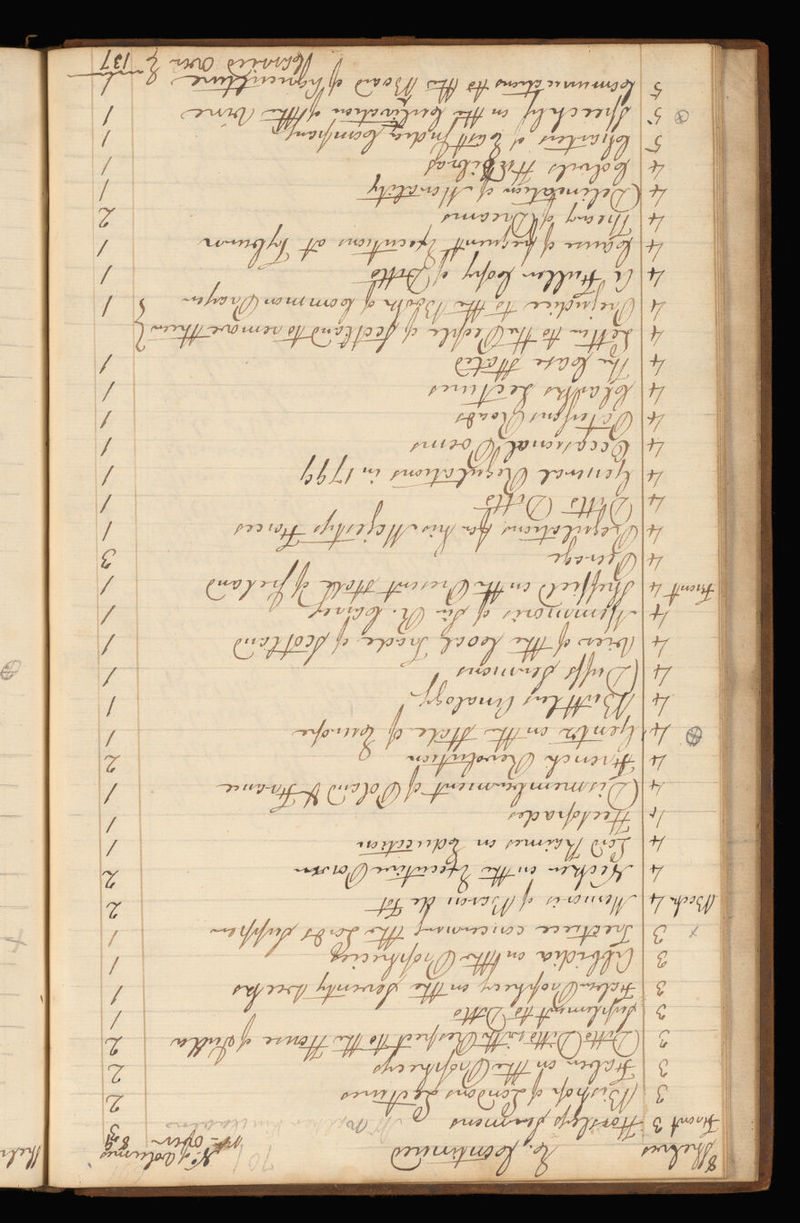 8 Shelves L. Continued No. of Volumes
Front 3 Horsleys Sermons 3
3 Bishop of Londons Lectures 2
3 Faber on the Prophecys 2
3 Ditto Ditto with Respect to the House of Judha 2
3 Suplement to Ditto 1
3 Faber Prophecy on the Seventy Weeks 1
3 on the Prophecies 1
x 3 Treatiece concerning the Lords Supper 1
Back 4 Memoirs of Baron de Tot 2
4 Necker on the Executive Power 2
4 Lord Kaimes on Education 1
4 1
4 Dismemberment of Poland & France 1
4 French Revolution 2
4 Gentz on the State of Europe 1
4 Buttlers Analogy 1
4 Duffs Sermons 1
4 View of the Local Trade of Scotland 1
4 Memmoris of Sir R. Carney 1
Front 4 Sheffield on the Present State of Ireland 1
4 Peerage 3
4 Regulations for his Majestys Forces 1
4 Ditto Ditto 1
4 General Regulations in 1799 1
4 Occasional Poems 1
4 Patersons Roads 1
4 Clarkes Lectures 1
4 The Case Stated 1
4 Letter to the People of Scotland to remove their
4 Prejudice to the Book of Common Prayer 1
4 A Fuller Copy of Ditto 1
4 Cause of frequent Executions at Tyburn 1
4 Theory of Dreams 2
4 Delineation of Morality 1
4 Colvils 1
5 Charters of East India Company 1
5 Speechly on the Cultivation of the Vine 1
5 Communications to the Board of Agriculture 1
Carried Over 137